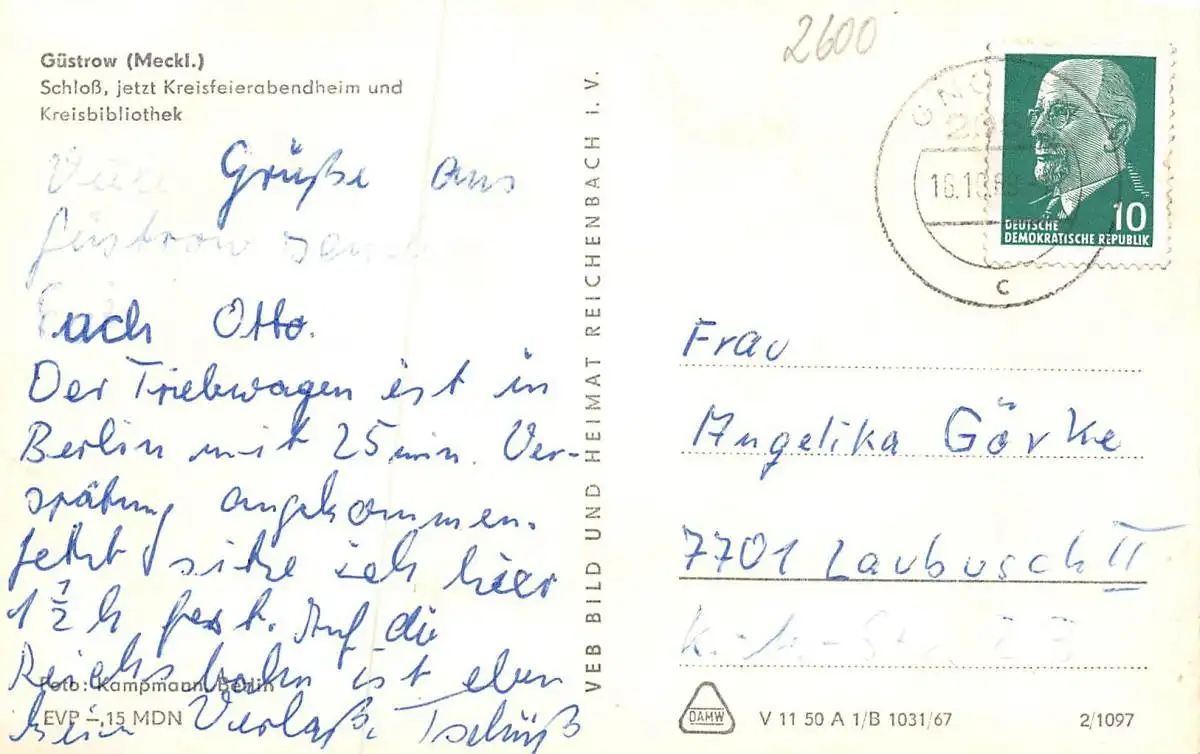 2600
Güstrow (Meckl.)
Schloß, jetzt Kreisfeierabendheim und
Kreisbibliothek
Viele Grüße aus
Güstrow sendet
Euch Otto.
Der Triebwagen ist in
Berlin mit 25 min. Ver-
spätung angekommen.
Jetzt sitze ich hier
1 1/2 h fest. Auf die
Reichsbahn ist eben
kein Verlaß. Tschüß
Foto: Kampmann, Berlin
EVP –,15 MDN
VEB BILD UND HEIMAT REICHENBACH I. V.
16.10.69
c
10
DEUTSCHE
DEMOKRATISCHE REPUBLIK
Frau
Angelika Görke
7701 Laubusch II
DAMW
V 11 50 A 1/B 1031/67
2/1097